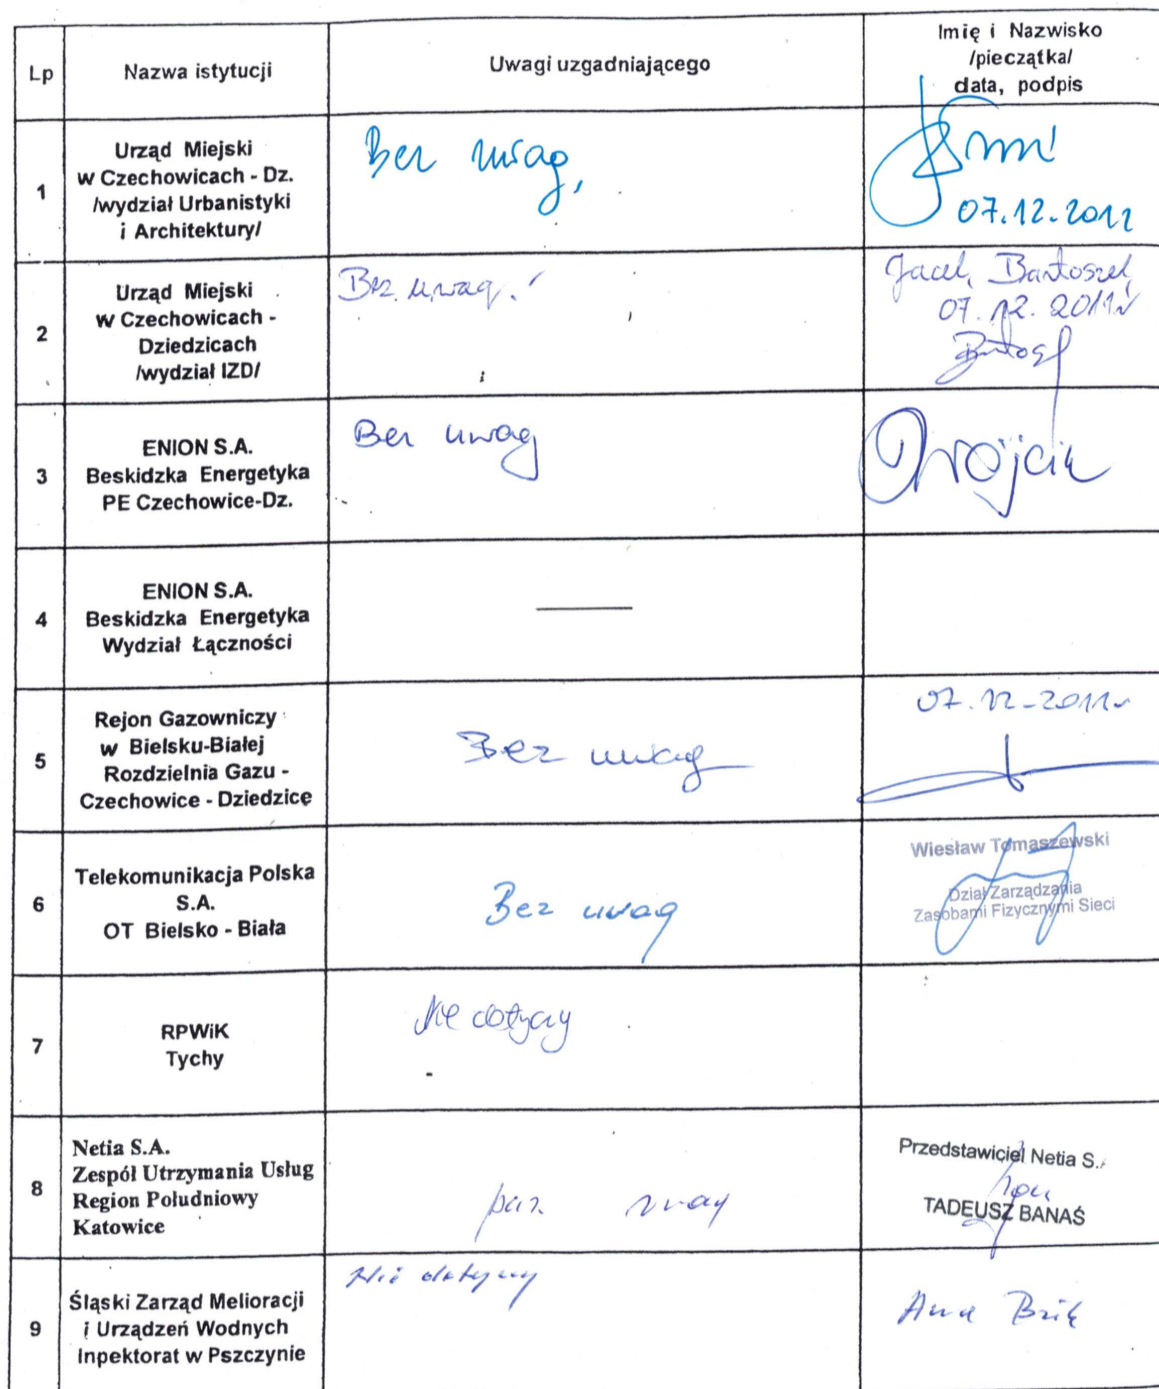 Lp
Nazwa istytucji
Uwagi uzgadniającego
Imię i Nazwisko
/pieczątka/
data, podpis
1
Urząd Miejski
w Czechowicach - Dz.
/wydział Urbanistyki
i Architektury/
Bez uwag,
07.12.2011
2
Urząd Miejski
w Czechowicach -
Dziedzicach
/wydział IZD/
Bez uwag.
Jacek Bartoszek
07.12.2011r
3
ENION S.A.
Beskidzka Energetyka
PE Czechowice-Dz.
Bez uwag
Wójcik
4
ENION S.A.
Beskidzka Energetyka
Wydział Łączności
5
Rejon Gazowniczy
w Bielsku-Białej
Rozdzielnia Gazu -
Czechowice - Dziedzice
Bez uwag
07.12-2011r
6
Telekomunikacja Polska
S.A.
OT Bielsko - Biała
Bez uwag
Wiesław Tomaszewski
Dział Zarządzania
Zasobami Fizycznymi Sieci
7
RPWiK
Tychy
Nie dotyczy
8
Netia S.A.
Zespół Utrzymania Usług
Region Południowy
Katowice
bez uwag
Przedstawiciel Netia S.A
TADEUSZ BANAŚ
9
Śląski Zarząd Melioracji
i Urządzeń Wodnych
Inpektorat w Pszczynie
Nie dotyczy
Anna